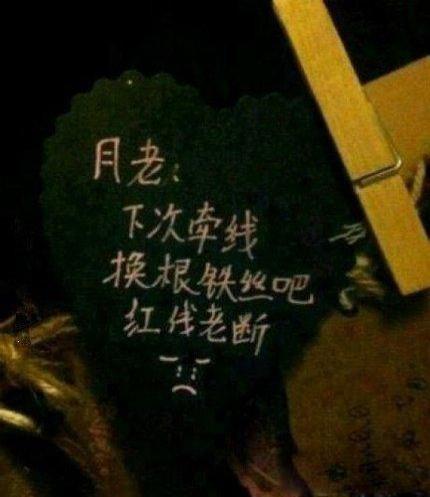 月老：
下次牵线
换根铁丝吧
红线老断